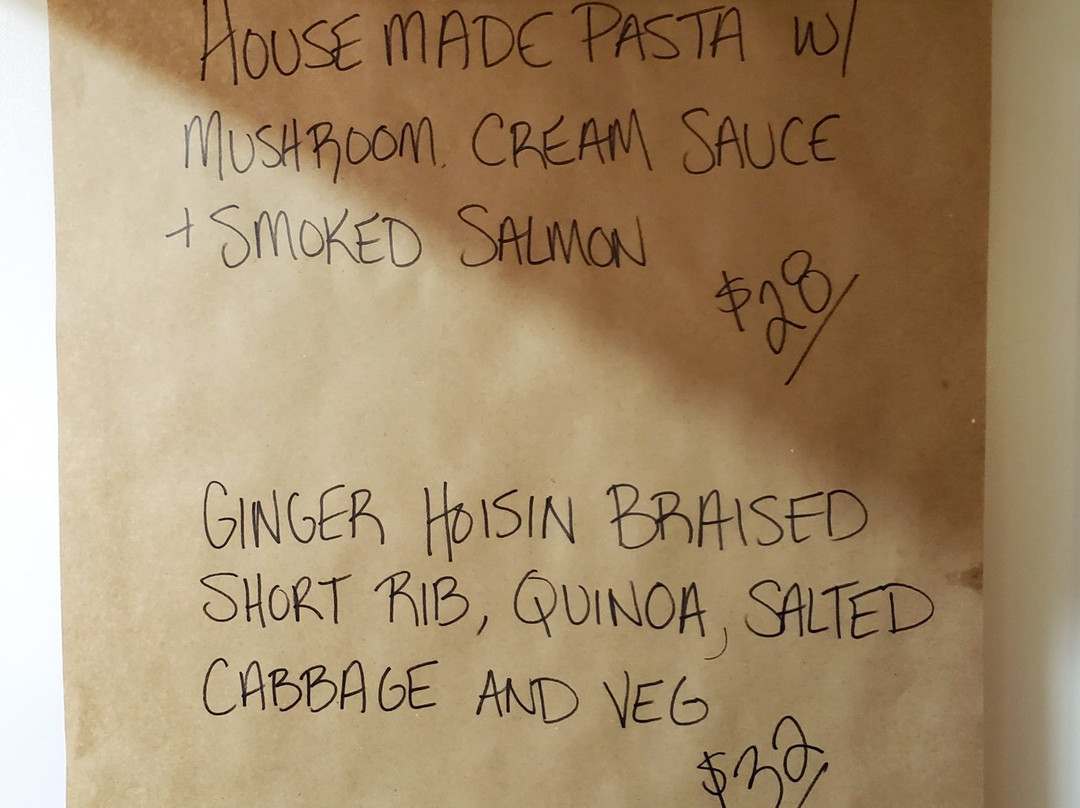 HOUSEMADE PASTA W/
MUSHROOM CREAM SAUCE
+ SMOKED SALMON
$28/
GINGER HOISIN BRAISED
SHORT RIB, QUINOA, SALTED
CABBAGE AND VEG
$32/